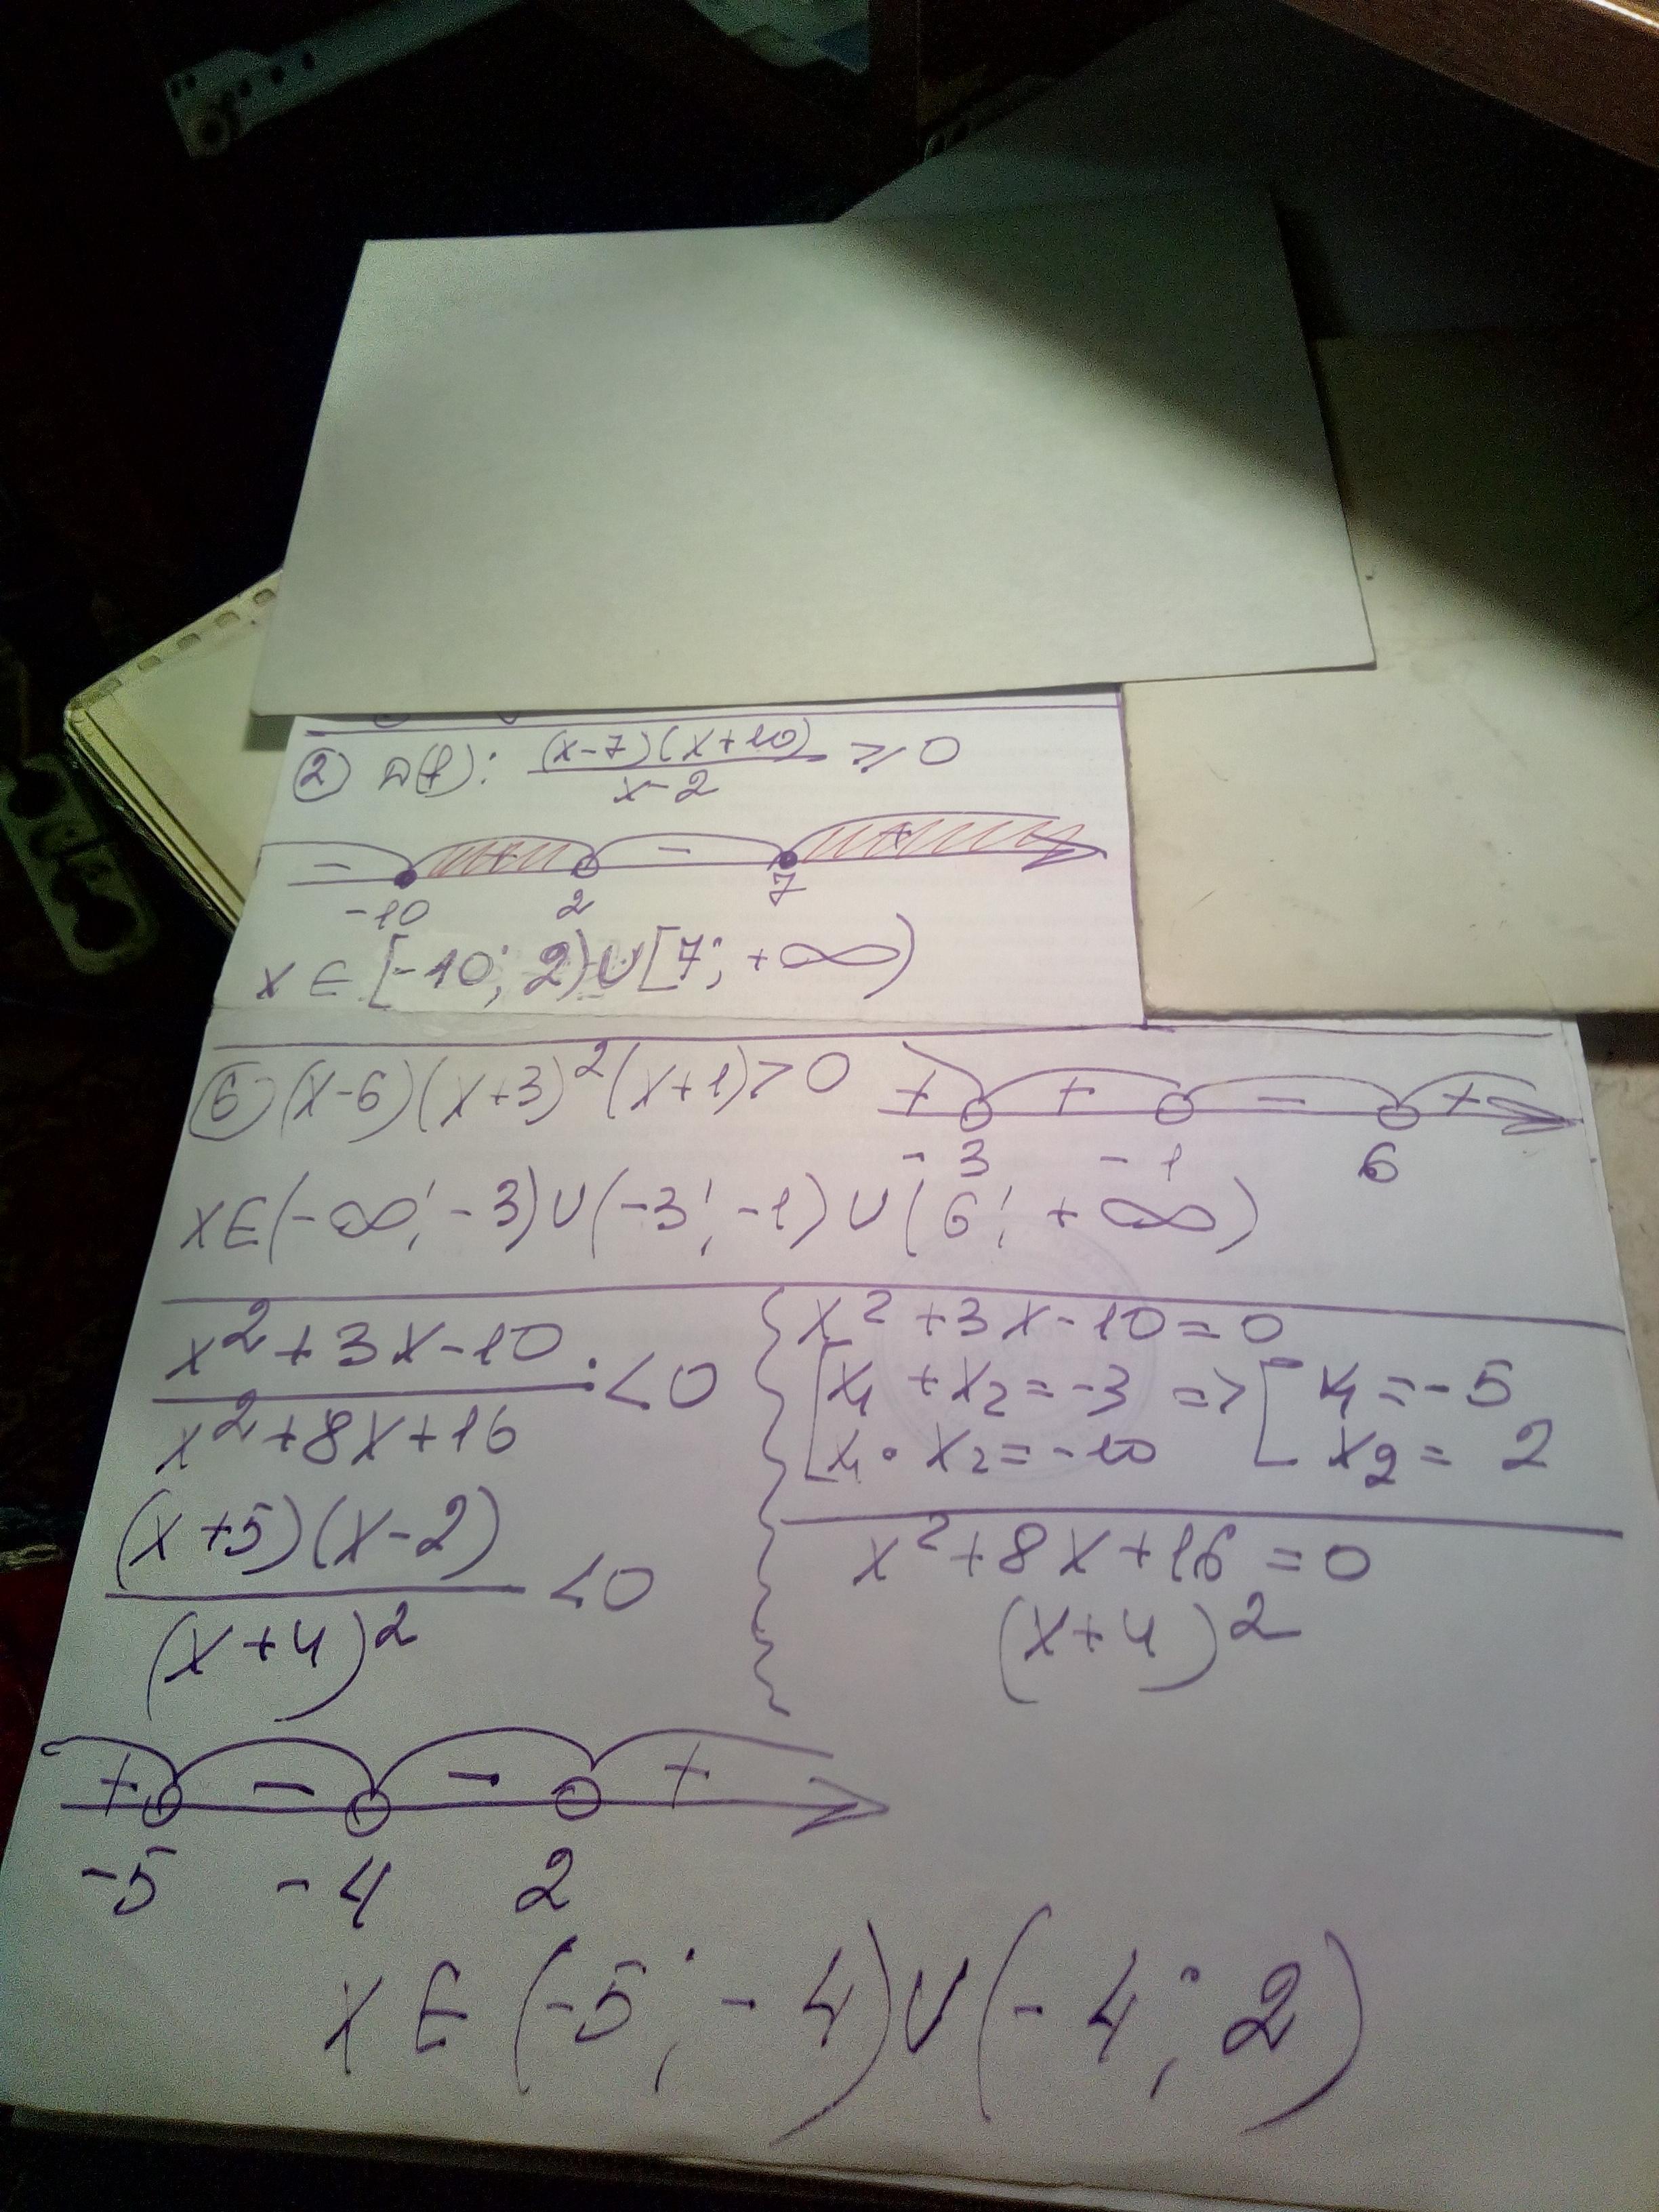 ② D(f): (x-7)(x+10)/(x-2) ⩾ 0
- + - +
-10 2 7
x ∈ [-10; 2) ∪ [7; +∞)
⑥ (x-6)(x+3)²(x+1)>0
+ + - +
-3 -1 6
x∈(-∞; -3)∪(-3; -1)∪(6; +∞)
x²+3x-10
x²+8x+16
<0
(x+5)(x-2)
(x+4)²
<0
x²+3x-10=0
[x₁+x₂=-3 => [x₁=-5
x₁•x₂=-10 x₂=2
x²+8x+16=0
(x+4)²
+ - - +
-5 -4 2
x∈(-5; -4)∪(-4; 2)